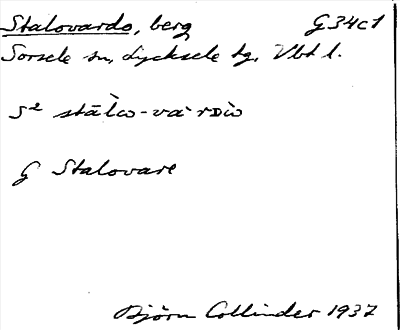 Stalovardo, berg G34c1
Sorsele sn, Lycksele tg, Vbt l.
S² stālω-va·rᴅὼ
G Stalovare
Björn Collinder 1937